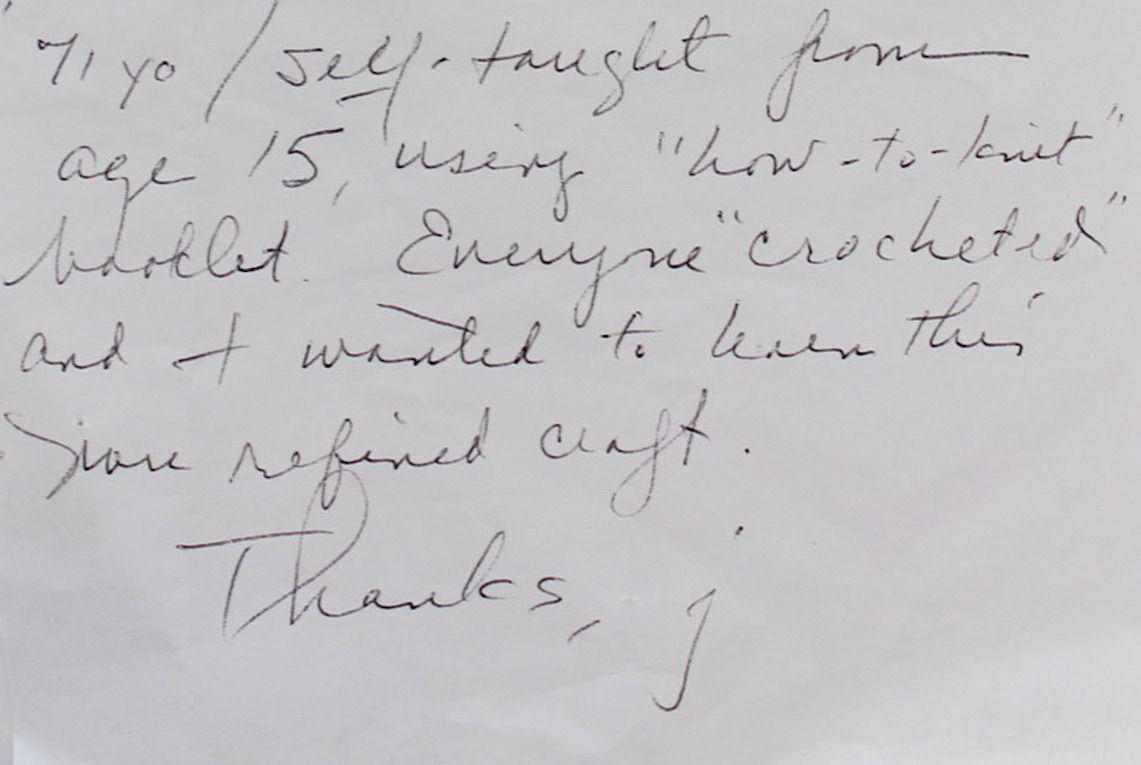 71 yo / self-taught from
age 15, using "how-to-knit"
booklet. Everyone "crocheted"
and I wanted to learn this
more refined craft.
Thanks, j